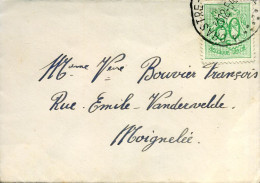 50
Mme Veve Bouvier François
Rue-Emile-Vandervelde
Moignelée.